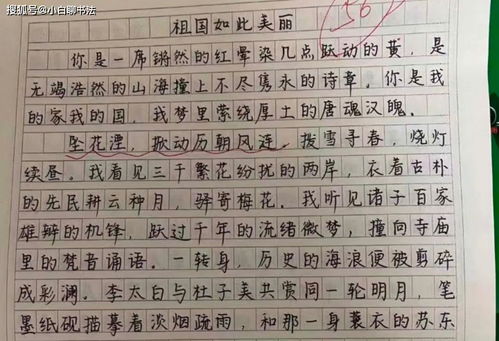 搜狐号@小白聊书法
56
祖国如此美丽
你是一席锵然的红晕染几点跃动的黄，是
无竭浩然的山海撞上不尽隽永的诗章。你是我
的家我的国，我梦里萦绕厚土的唐魂汉魄。
坠花湮，掀动历朝风涟，拨雪寻春，烧灯
续昼。我看见三千繁花纷扰的两岸，衣着古朴
的先民耕云种月，驿寄梅花。我听见诸子百家
雄辩的机锋，跃过千年的流绪微梦，撞向寺庙
里的梵音诵语。一转身，历史的海浪便被剪碎
成彩澜。李太白与杜子美共赏同一轮明月，笔
墨纸砚描摹着淡烟疏雨，和那一身蓑衣的苏东